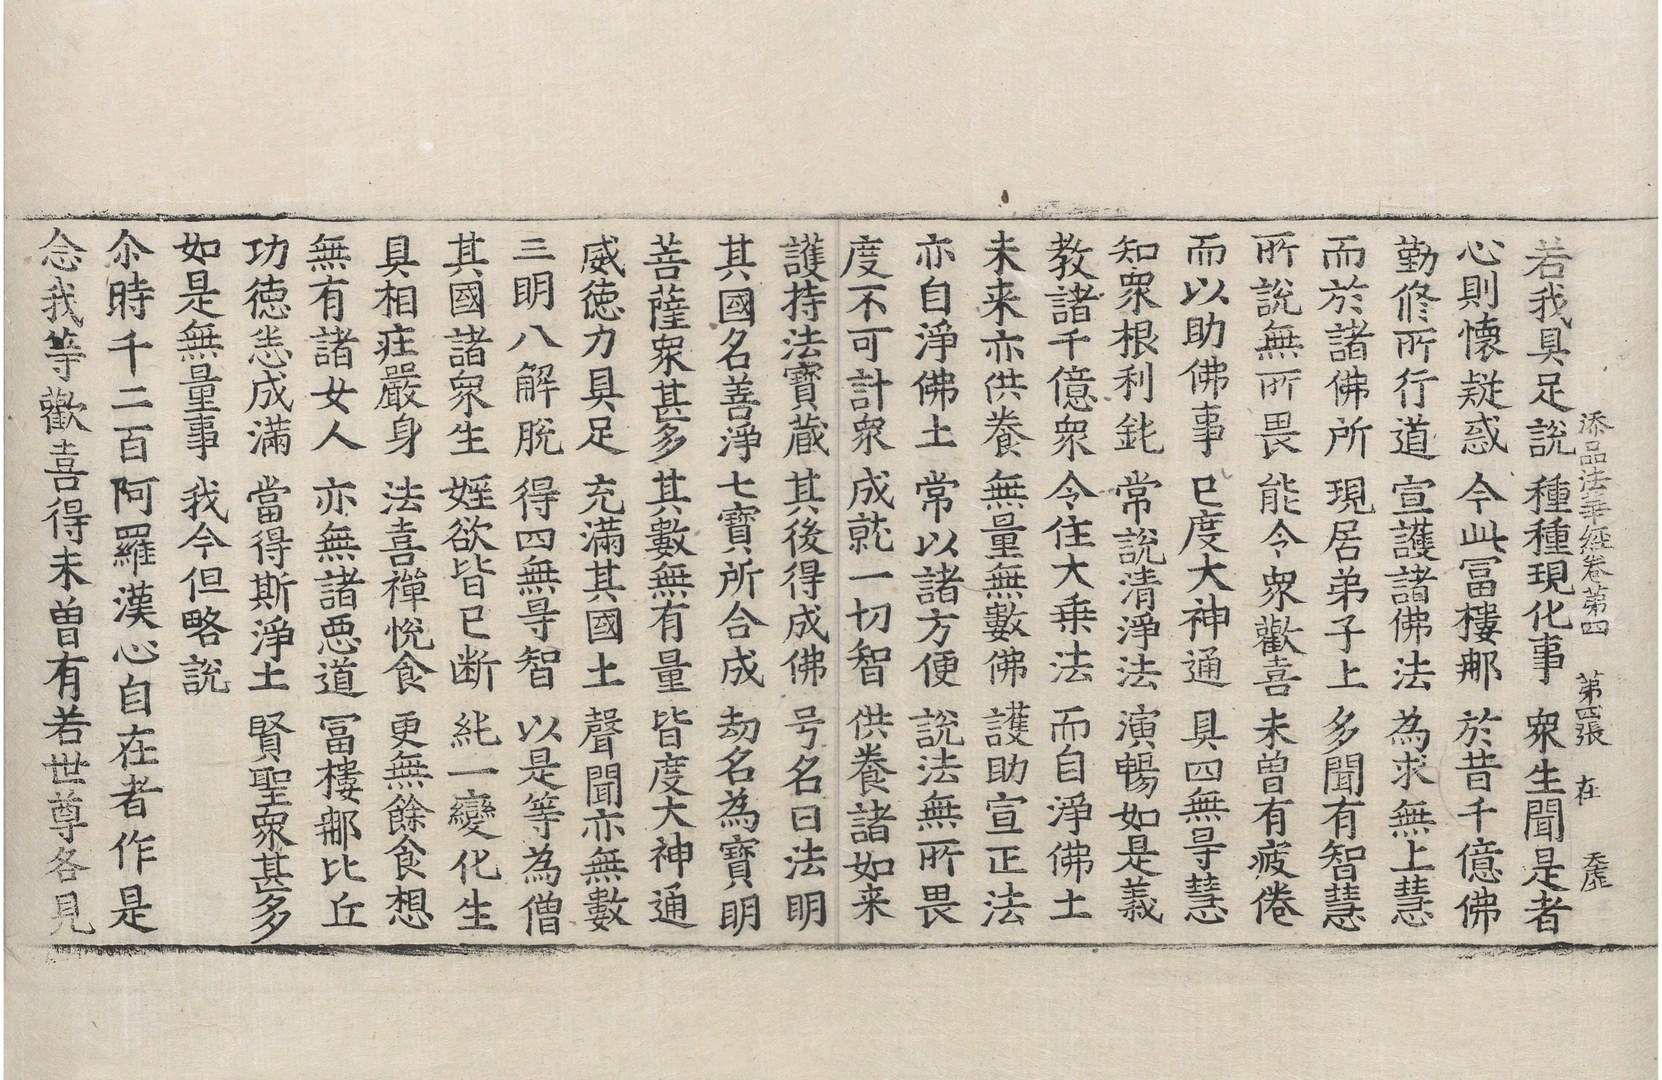 添品法華經卷第四 第四張 在
若我具足說 種種現化事 衆生聞是者
心則懷疑惑 今此冨樓那 於昔千億佛
勤修所行道 宣護諸佛法 為求無上慧
而於諸佛所 現居弟子上 多聞有智慧
所說無所畏 能令衆歡喜 未曽有疲倦
而以助佛事 已度大神通 具四無㝵慧
知衆根利鈍 常說清淨法 演暢如是義
教諸千億衆 令住大乗法 而自淨佛土
未来亦供養 無量無數佛 護助宣正法
亦自淨佛土 常以諸方便 說法無所畏
度不可計衆 成就一切智 供養諸如来
護持法寶蔵 其後得成佛 号名曰法明
其國名善淨 七寶所合成 劫名為寶明
菩薩衆甚多 其數無有量 皆度大神通
威徳力具足 充滿其國土 聲聞亦無數
三明八解脫 得四無㝵智 以是等為僧
其國諸衆生 婬欲皆已断 純一變化生
具相莊嚴身 法喜禪悅食 更無餘食想
無有諸女人 亦無諸惡道 冨樓那比丘
功徳悉成滿 當得斯淨土 賢聖衆甚多
如是無量事 我今但略說
尒時千二百阿羅漢心自在者作是
念我等歡喜得未曽有若世尊各見